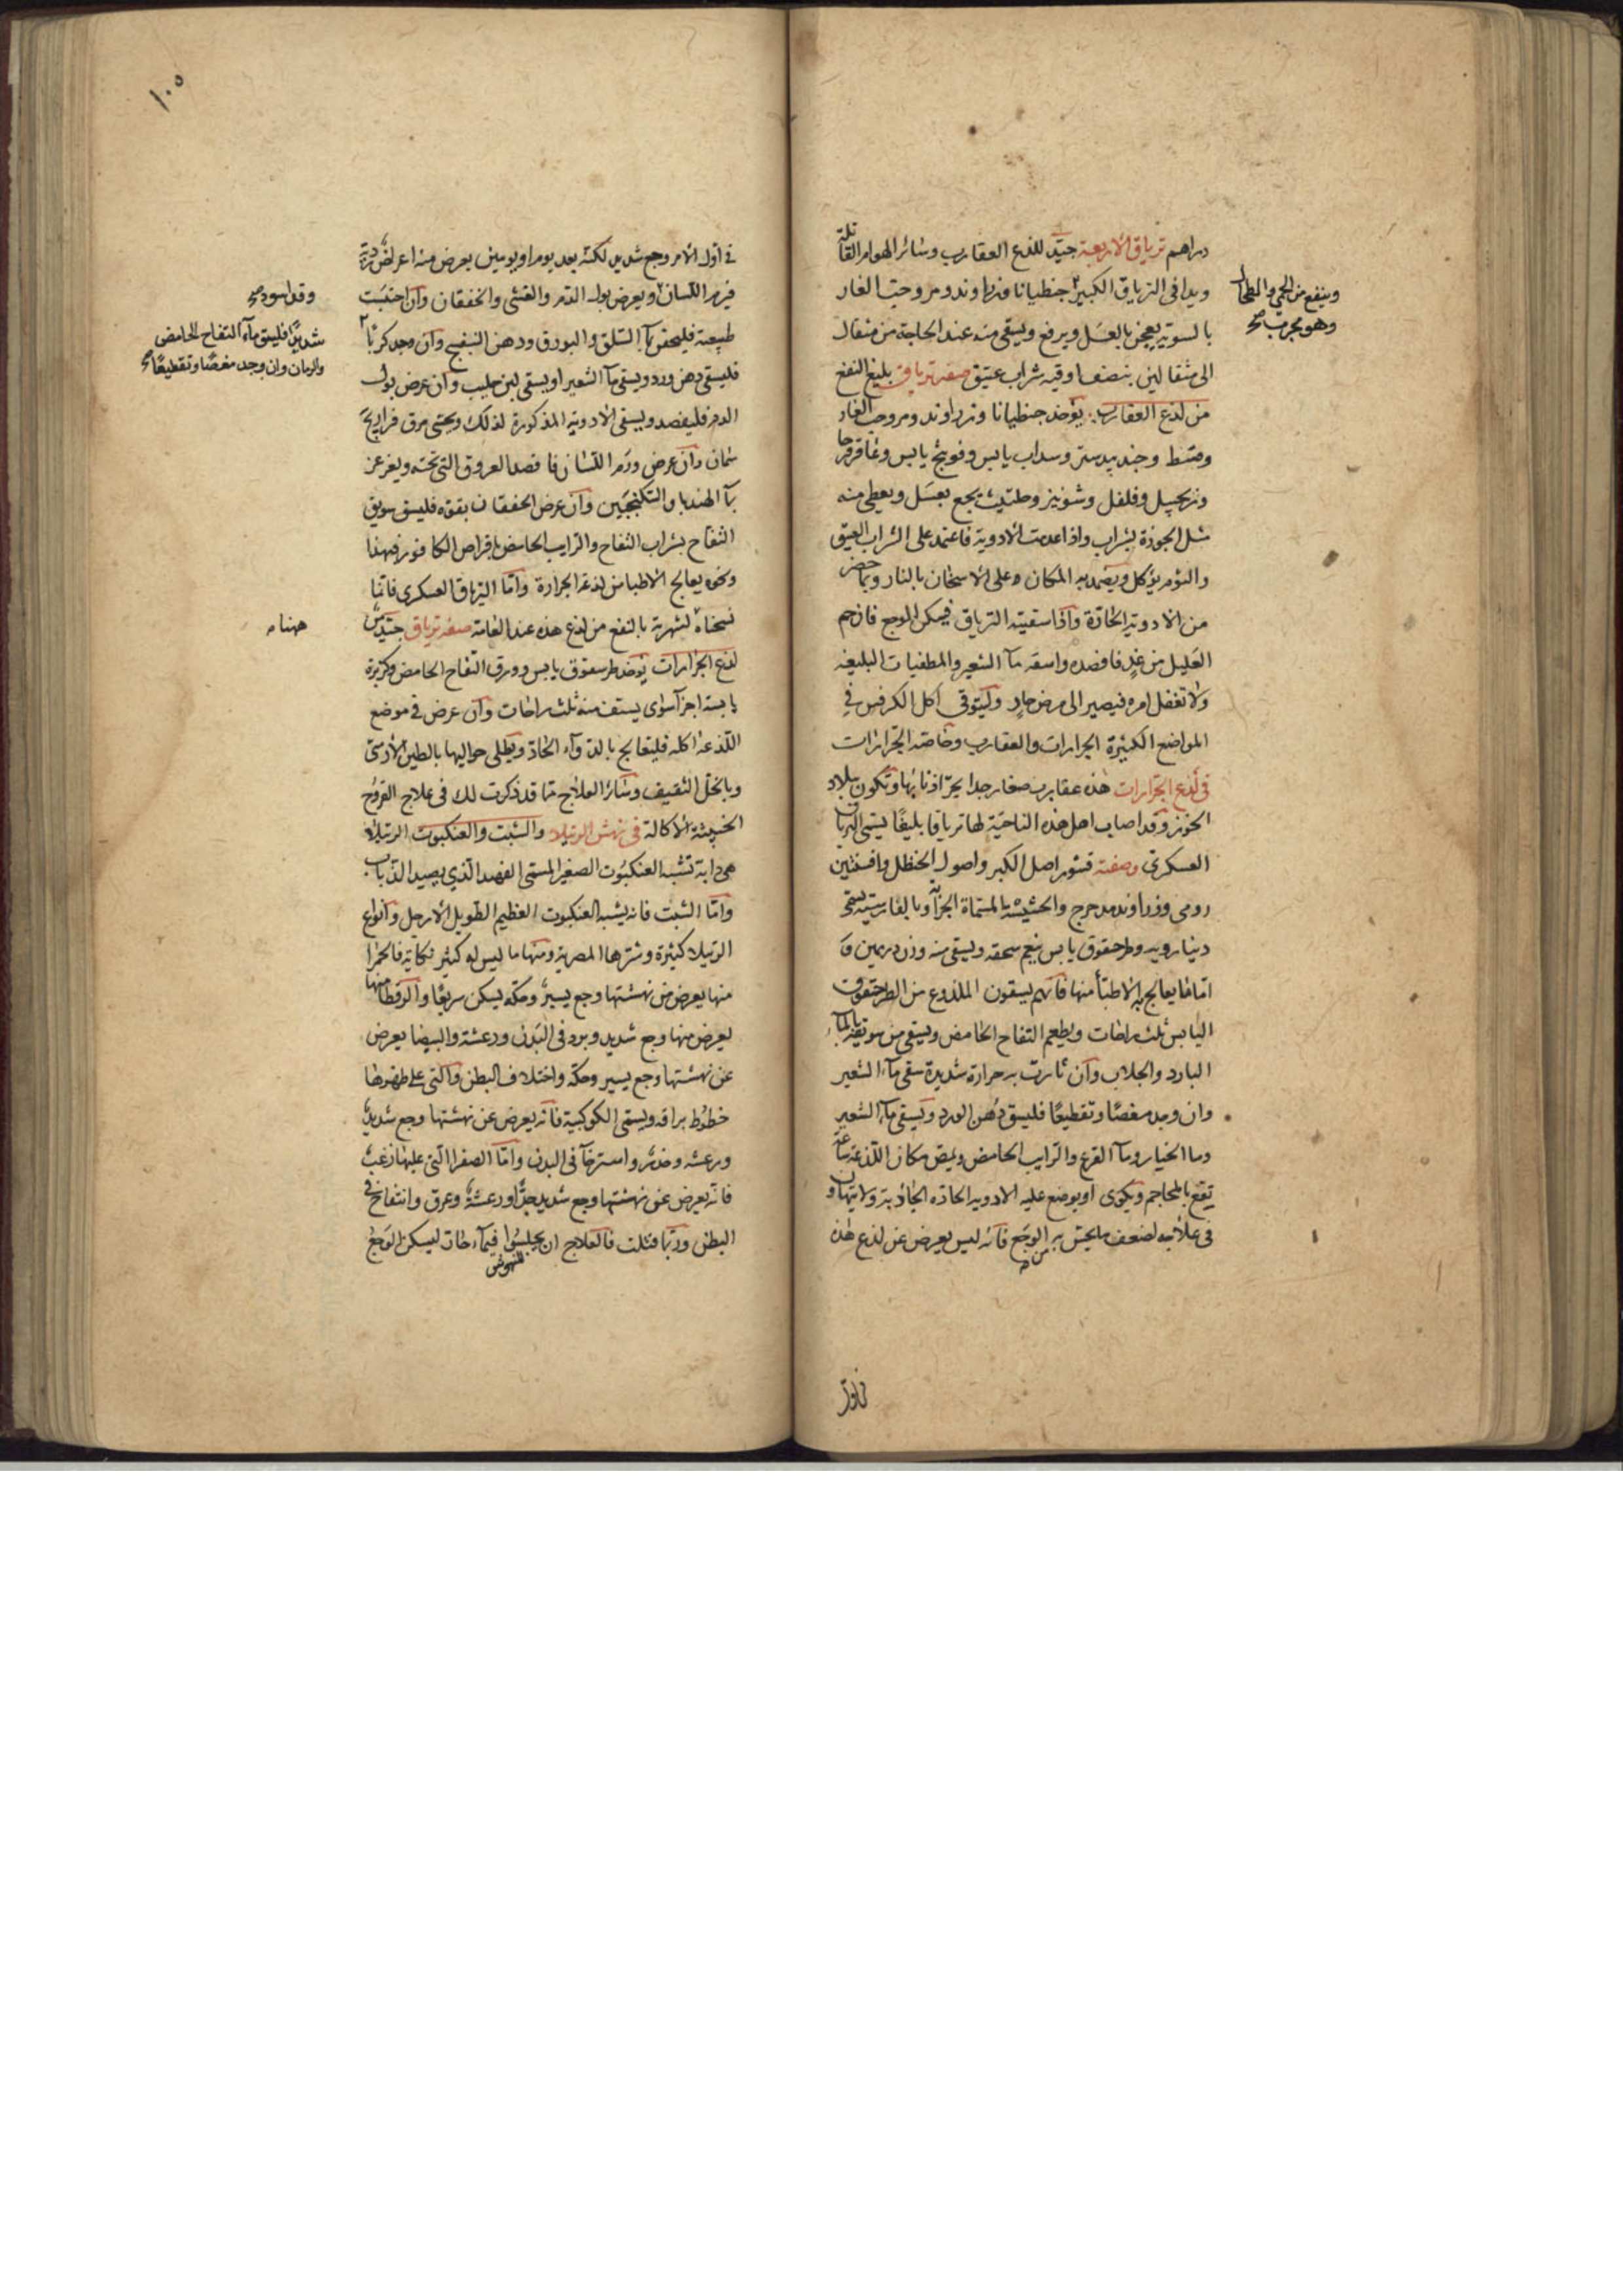 دراهم ترياق الاربعة جيّد للذع العقارب وسائر الهوام القاتلة
ويدافى الترياق الكبير جنطيانا وزراوند ومر وحبّ الغار
بالسوية يعجن بالعسَل ويرفع ويسقى منه عند الحاجة من مثقال
الى مثقالين بنصف اوقيه شراب عتيق صفة ترياق بليغ النفع
من لذع العقارب يؤخذ جنطيانا وزراوند ومر وحب الغار
وقسط وجندبيدستر وسداب يابس وفوتنج يابس وعاقرقرحا
وزنجبيل وفلفل وشونيز وحلتيت يجمع بعسَل ويعطى منه
مثل الجوزة بشراب واذا عدمت الادوية فاعتمد على الشراب العتيق
والثوم يؤكل ويضمد به المكان وعلى الاسخان بالنار وبما حضر
من الادوية الحادّة واذا سقيته الترياق فيسكن الوجع فان حم
العَليل من غدٍ فافصده واسقه مآ الشعير والمطفيات البليغه
ولا تغفل امره فيصير الى مرض حادٍ وليتوقى اكل الكرفس في
المواضع الكثيرة الجرارات والعقارب وخاصة الجرّارات
فى لذع الجرّارات هذه عقارب صغار جدا يجرّ اذنابها وتكون ببلاد
الخوز وقد اصاب اهل هذه الناحيّة لها ترياقا بليغًا يسمى الترياق
العسكرى وصفته قشور اصل الكبر واصول الحنظل وافسنتين
رومى وزراوند مدحرج والحشيشة المسمّاة الجزآ وبالفارسيّة يسمّى
دينارويه وطرحشقوق يابس ينعم سحقه ويسقى منه وزن درهمين فا
امّا ما يعالج به الاطبّأ منها فانهم يسقون الملذوع من الطرحشقوق
اليابس ثلث راحات ويطعم التفاح الحامض ويسقى من سويقه بالمآء
البارد والجلاب وان ثارت به حرارة شديدة سقى مآء الشعير
وان وجد مغصًا وتقطيعًا فليسق دُهن الورد ويسقى مآء الشعير
وما الخيار ومآ القرع والرايب الحامض ويمص مكان اللذعة ما
تقع بالمحاجم ويكوى او يوضع عليه الادويه الحادّه الجاذبة ولا يتهاون
فى علاجه لضعف ما يحس به من الوجَع فانه ليس يعرض عن لذع هذه
فى اول
وينفع من الحمى والطحال
وهو مجرب صح
١٠٥
فى اوّل الامر وجع شديد لكنّه بعد يوم او يومين يعرض منه اعراض رديّة
فيرم اللسان ويعرض بول الدّم والغشى والخفقان وان احتبست
طبيعته فليحقن بمآ السّلق والبورق ودهن البنفسج وان وجد كربًا
فليسقى دهن ورد ويسقى مآ الشعير او يسقى لبن حليب وان عرض بول
الدم فليفصد ويسقى الادوية المذكورة لذلك ويحسّى مرق فراريج
سمان وان عرض ورَم اللّسان فافصد العروق التى تحته ويغرغر
بمآ الهندبا والسّكنجبَين وان عرض الخفقان بقوه فليسق سويق
التفاح بشراب التفاح والرايب الحامض باقراص الكافور فبهذا
ونحوه يعالج الاطبا من لذغه الجرارة وامّا الترياق العسكرى فانما
نسخناه لشهرته بالنفع من لذع هذه عند العامة صفه ترياق جيّد من
لذع الجرّارات يؤخذ طرحشقوق يابس وورق التفاح الحامض وكزبرة
يابسة اجزآ سوآى يستف منه ثلث راحات وان عرض فى موضع
اللّذعة اكله فليتعالج بالدوآء الحادّ ويطلى حواليها بالطين الارمنى
وبالخل الثقيف وسَائر العلاج ممّا قد ذكرت لك فى علاج القروح
الخبيثة الاكالة فى نهش الرتيلا والشبت والعنكبوت الرتيلا
هى دابة تشبه العنكبُوت الصغير المسمّى الفهد الذي يصيد الذباب
وامّا الشبت فانه يشبه العنكبوت العظيم الطّويل الارجل وانواع
الرّتيلا كثيرة وشرّها المصرية ومنها ما ليس له كثير نكاية فالحمرا
منها يعرض من نهشتها وجع يسير وحكّه يسكن سريعًا والرقطا منها
يعرض منها وجع شديد وبرد فى البَدن ورعشة والبيضا يعرض
عن نهشتها وجع يسير وحكّه واختلاف البطن والّتى على ظهرها
خطوُط براقه ويسمى الكوكبية فانّه يعرض عن نهشتها وجع شديد
ورعشه وخدَر واسترخآ فى البدن وامّا الصفرا التى عليها زغب
فانّه يعرض عن نهشتها وجع شديد جدًّا ورعشة وعرق وانتفاخ فى
البطن وربّما قتلت فالعلاج ان يجلسُوا المنهوش فى مآء حارّ ليسكن الوَجع
وقد اسود صح
شديدًا فليسق مآء التفاح الحامض
والرمان وان وجد مغصًا وتقطيعًا صح